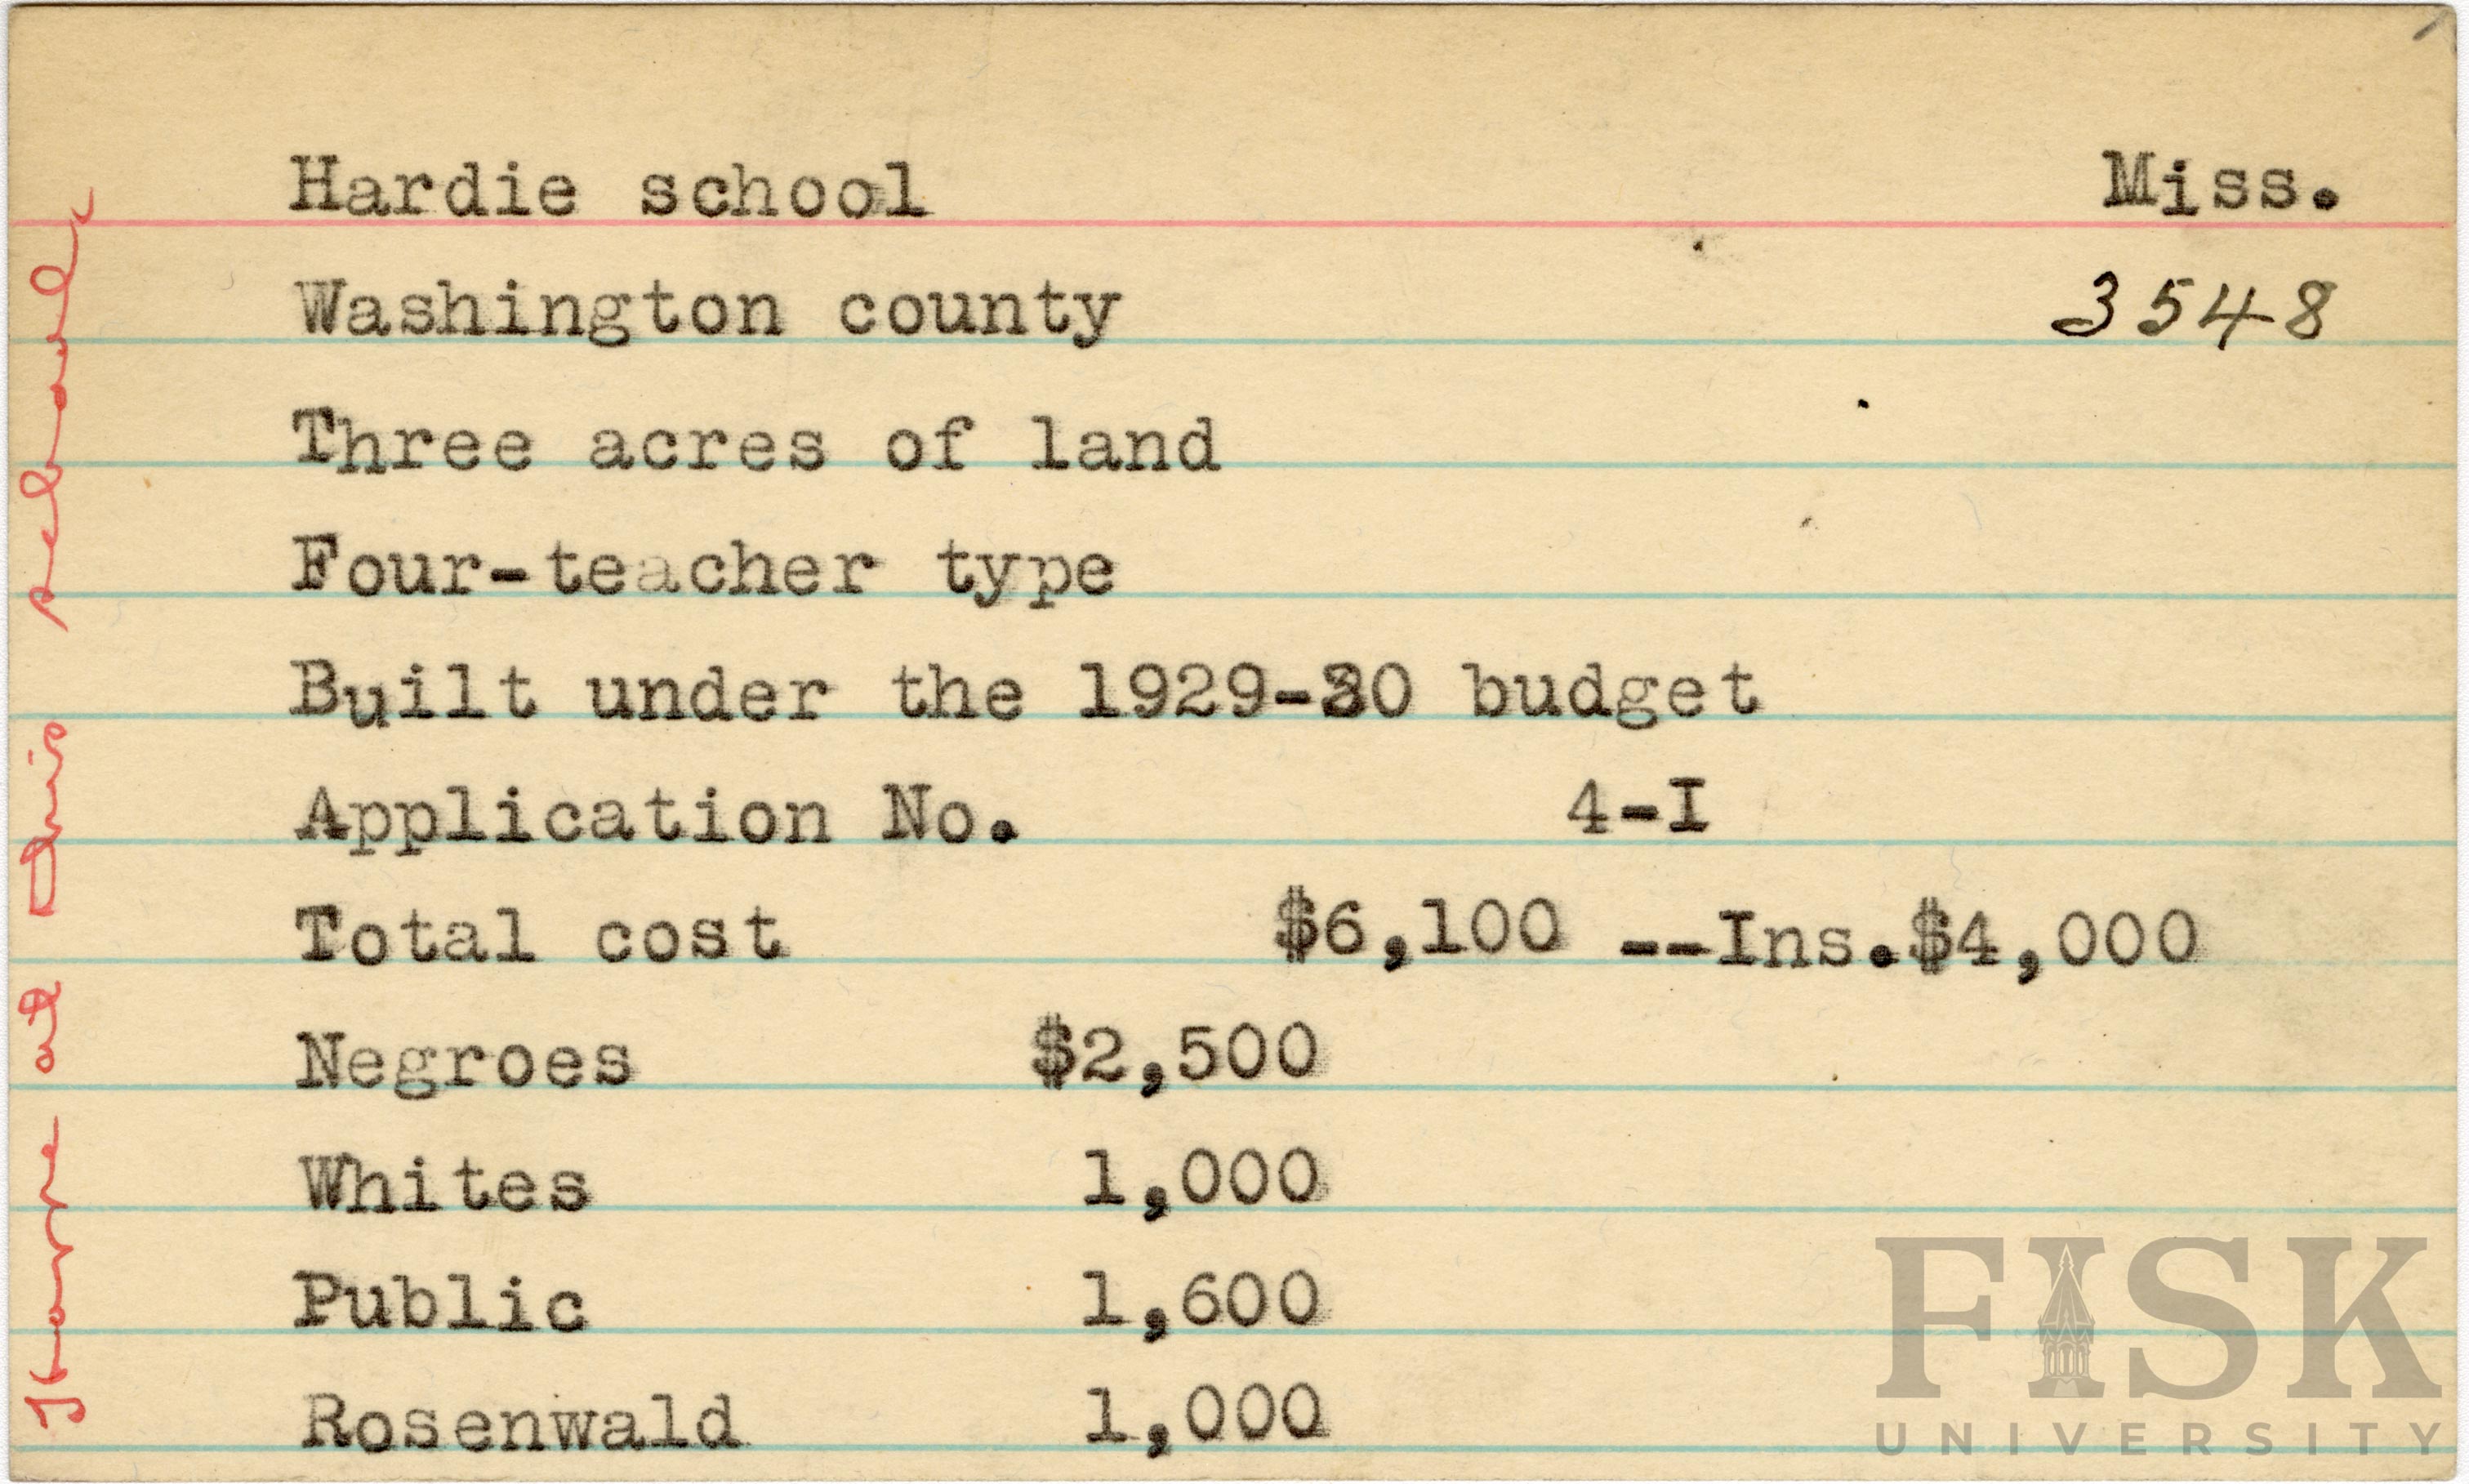 Hardie school Miss.
Washington county 3548
Three acres of land
Four-teacher type
Built under the 1929-30 budget
Application No. 4-I
Total cost $6,100 --Ins.$4,000
Negroes $2,500
Whites 1,000
Public 1,600
Rosenwald 1,000
Home at this school
FISK
UNIVERSITY